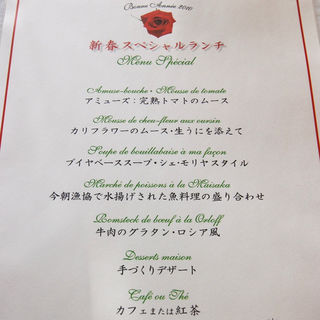 Bonne Année 2010
新春スペシャルランチ
Menu Spécial
Amuse-bouche・Mousse de tomate
アミューズ：完熟トマトのムース
Mousse de cheu-fleur aux oursin
カリフラワーのムース・生うにを添えて
Soupe de bouillabaisse à ma façon
ブイヤベーススープ・シェ・モリヤスタイル
Marché de poissons à la Maisaka
今朝漁協で水揚げされた魚料理の盛り合わせ
Romsteck de bœuf à la Orloff
牛肉のグラタン・ロシア風
Desserts maison
手づくりデザート
Café ou Thé
カフェまたは紅茶